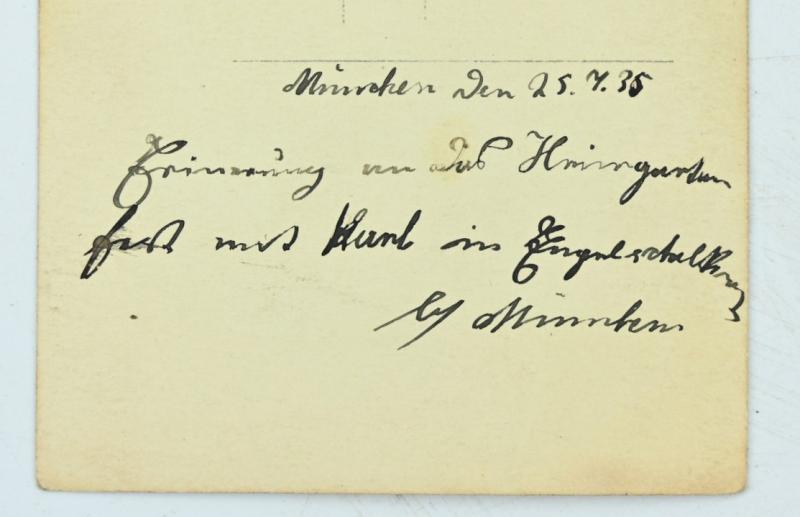 München den 25.7.35
Erinnerung an das Heimgarten
fest mit Karl in Engelschalking
b/ München